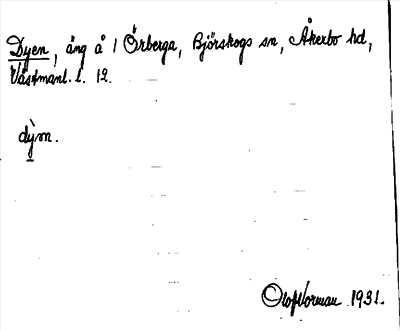 Dyen, äng å 1 Örberga, Björskogs sn, Åkerbo hd,
Västmanl. l. 12.
dỳn.
Olof Norman 1931.